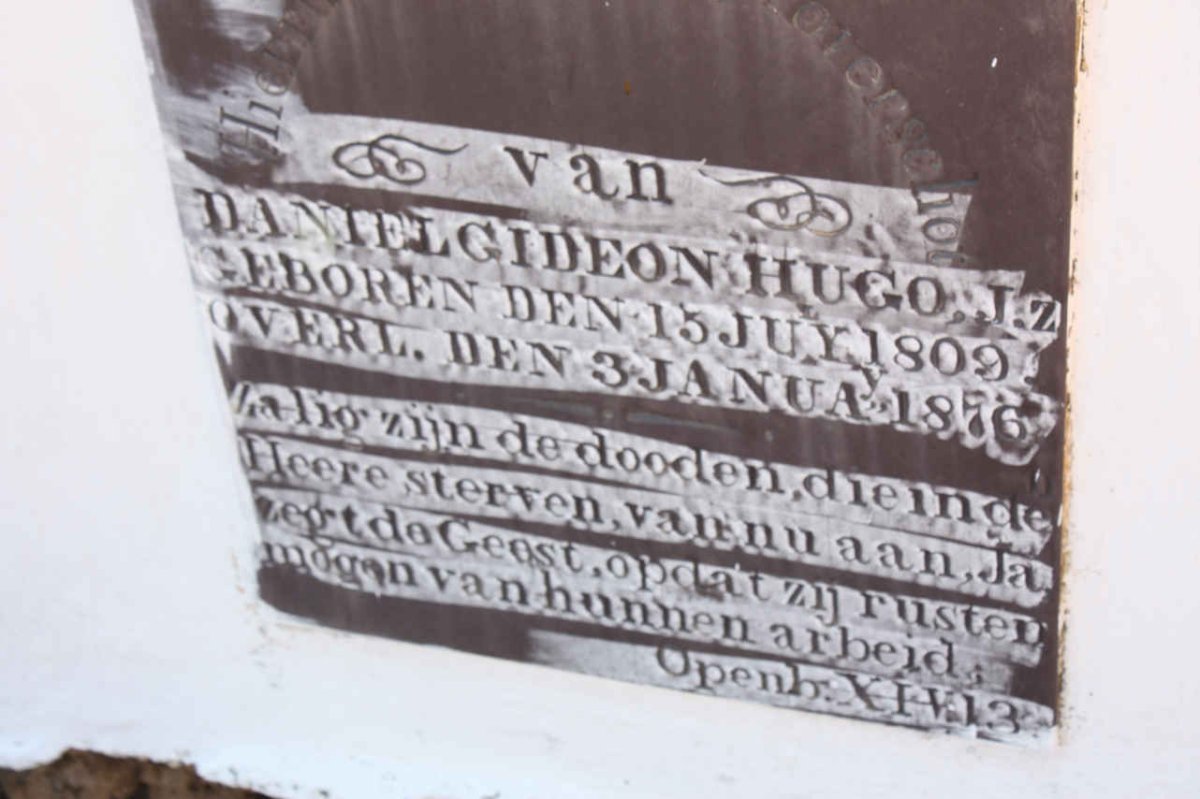 Hier
oterschot
van
DANIEL GIDEON HUGO, J.z
GEBOREN DEN 15 JULY 1809
OVERL. DEN 3 JANUAY 1876
Zalig zijn de dooden, die in de
Heere sterven, van nu aan, Ja
zegt de Geest, opdat zij rusten
mogen van hunnen arbeid,
Openb: XIV:13